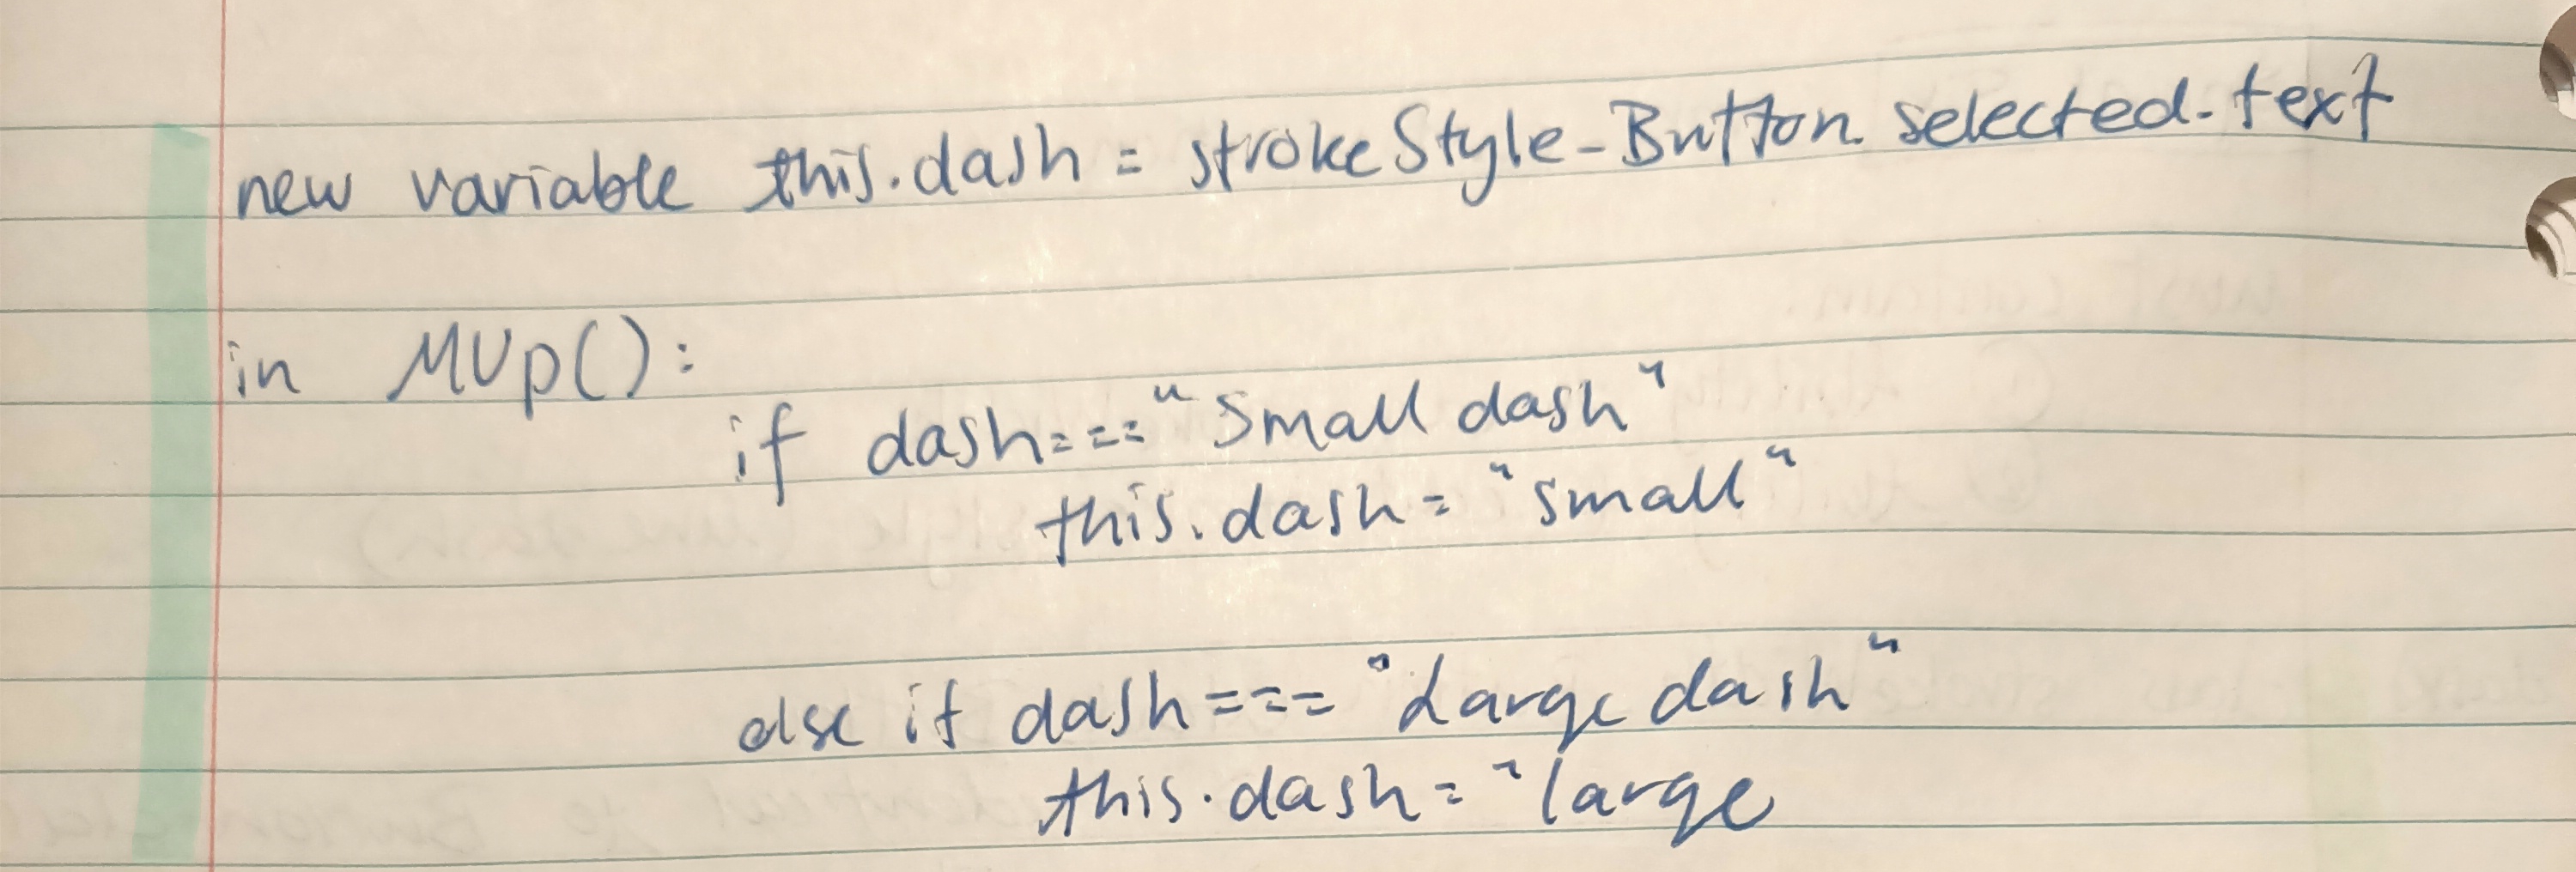 new variable this.dash = strokeStyle-Button.selected.text
in MUp():
if dash==="Small dash"
this.dash = "small"
else if dash==="Large dash"
this.dash = "large